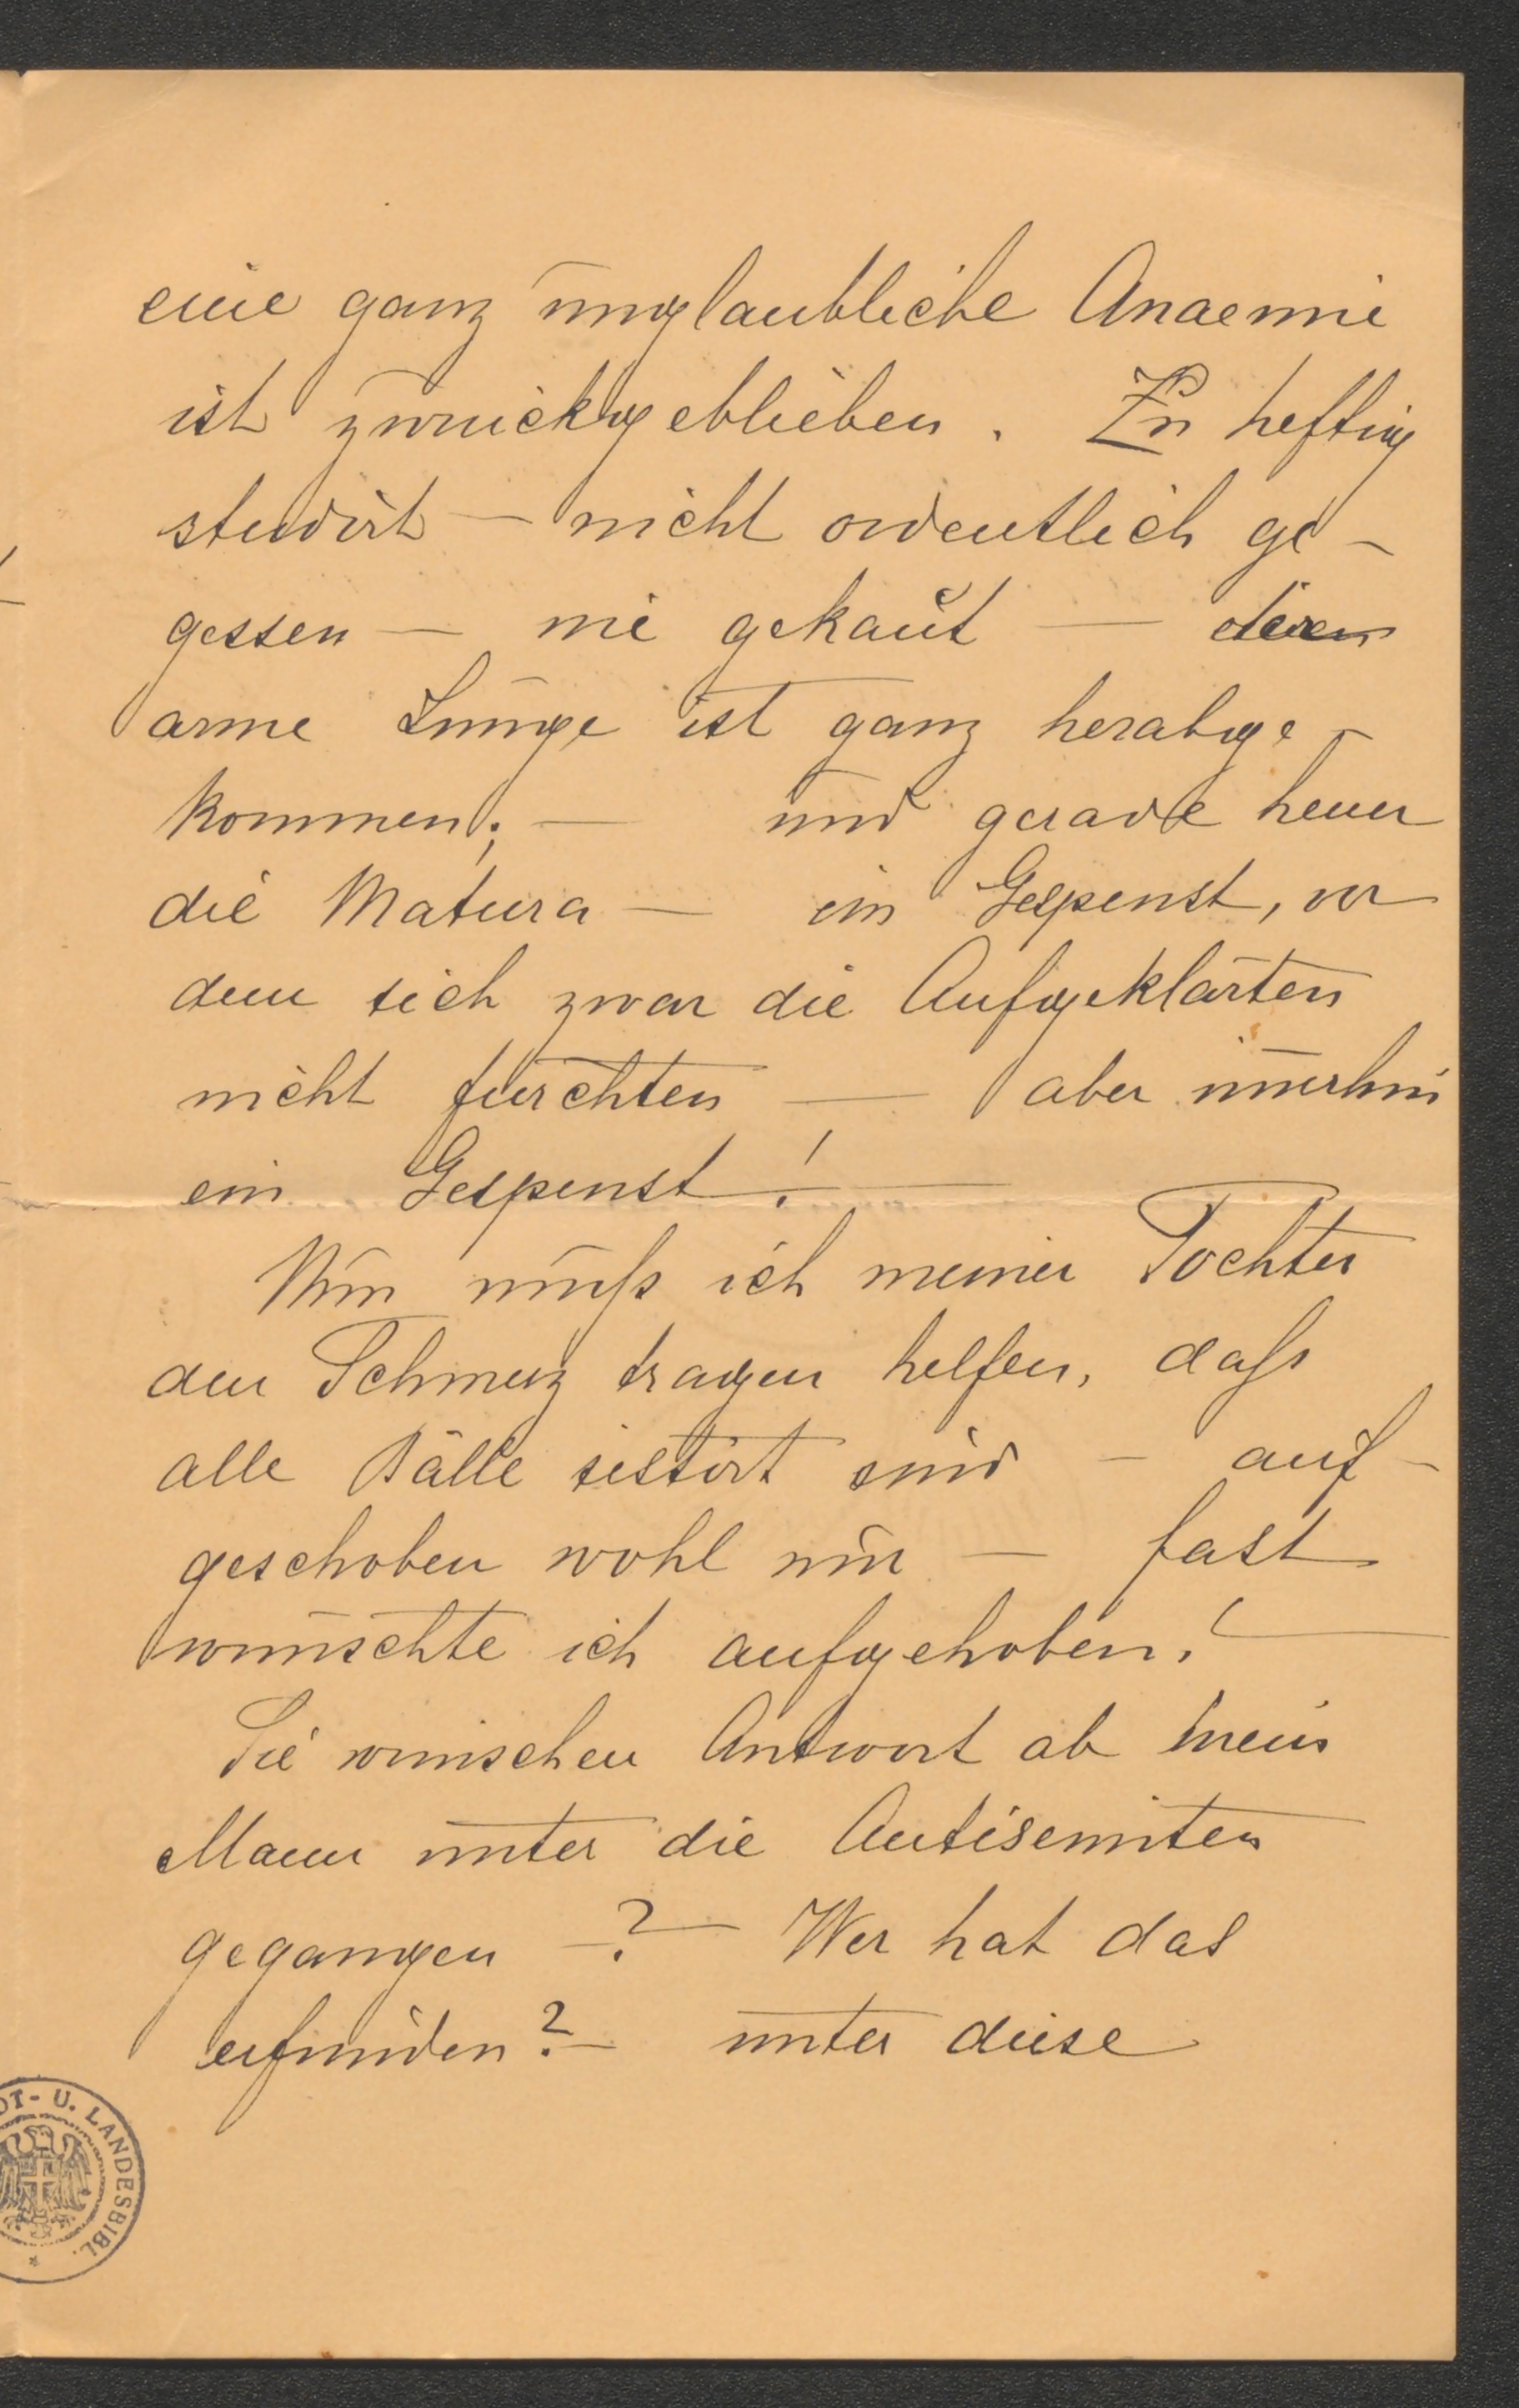 eine ganz unglaubliche Anaemie
ist zurückgeblieben. Zu heftig
studirt — nicht ordentlich ge-
gessen — nie gekaut —
arme Junge ist ganz herabge-
kommen; — und gerade heuer
die Matura — ein Gespenst, vor
dem sich zwar die Aufgeklärten
nicht fürchten — aber immerhin
ein Gespenst! —
Nun muß ich meiner Tochter
den Schmerz tragen helfen, daß
alle Bälle sistirt sind — auf-
geschoben wohl nur — fast
wünschte ich aufgehoben! —
Sie wünschen Antwort ob mein
Mann unter die Antisemiten
gegangen —? — Wer hat das
erfunden? — unter diese
DT- U. LANDESBIBL. *